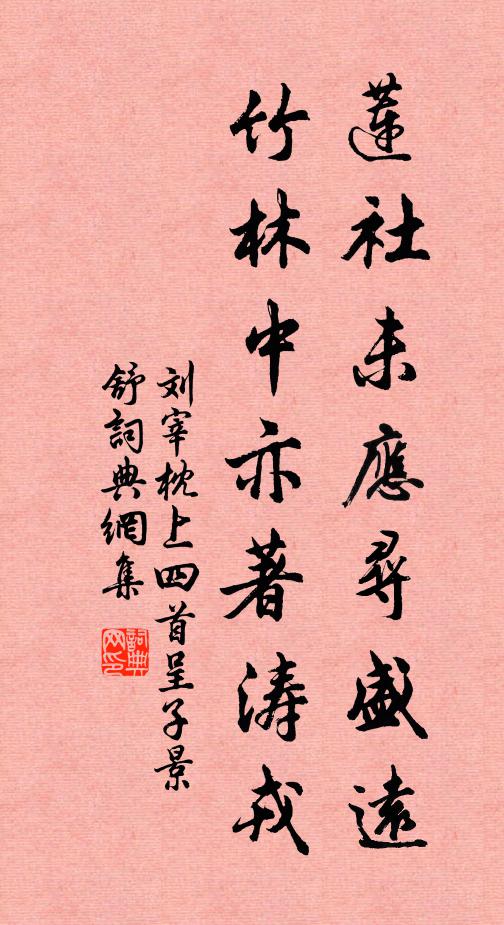 蓮社未應尋盛遠
竹林中亦著濤戎
刘宰枕上四首呈子景
舒詞典網集
詞典
网印